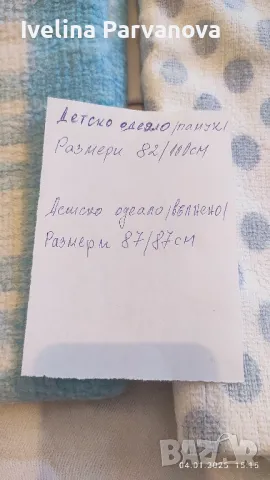 Ivelina Parvanova
Детско одеяло /памук/
Размери 82/100см
Детско одеало /вълнено/
Размери 87/87см
BAZAR
04.01.2025 15:15